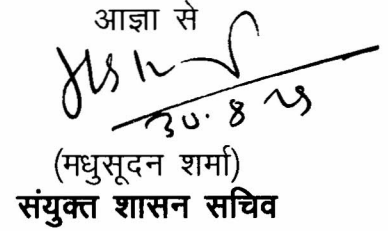 आज्ञा से
30.8.25
(मधुसूदन शर्मा)
संयुक्त शासन सचिव